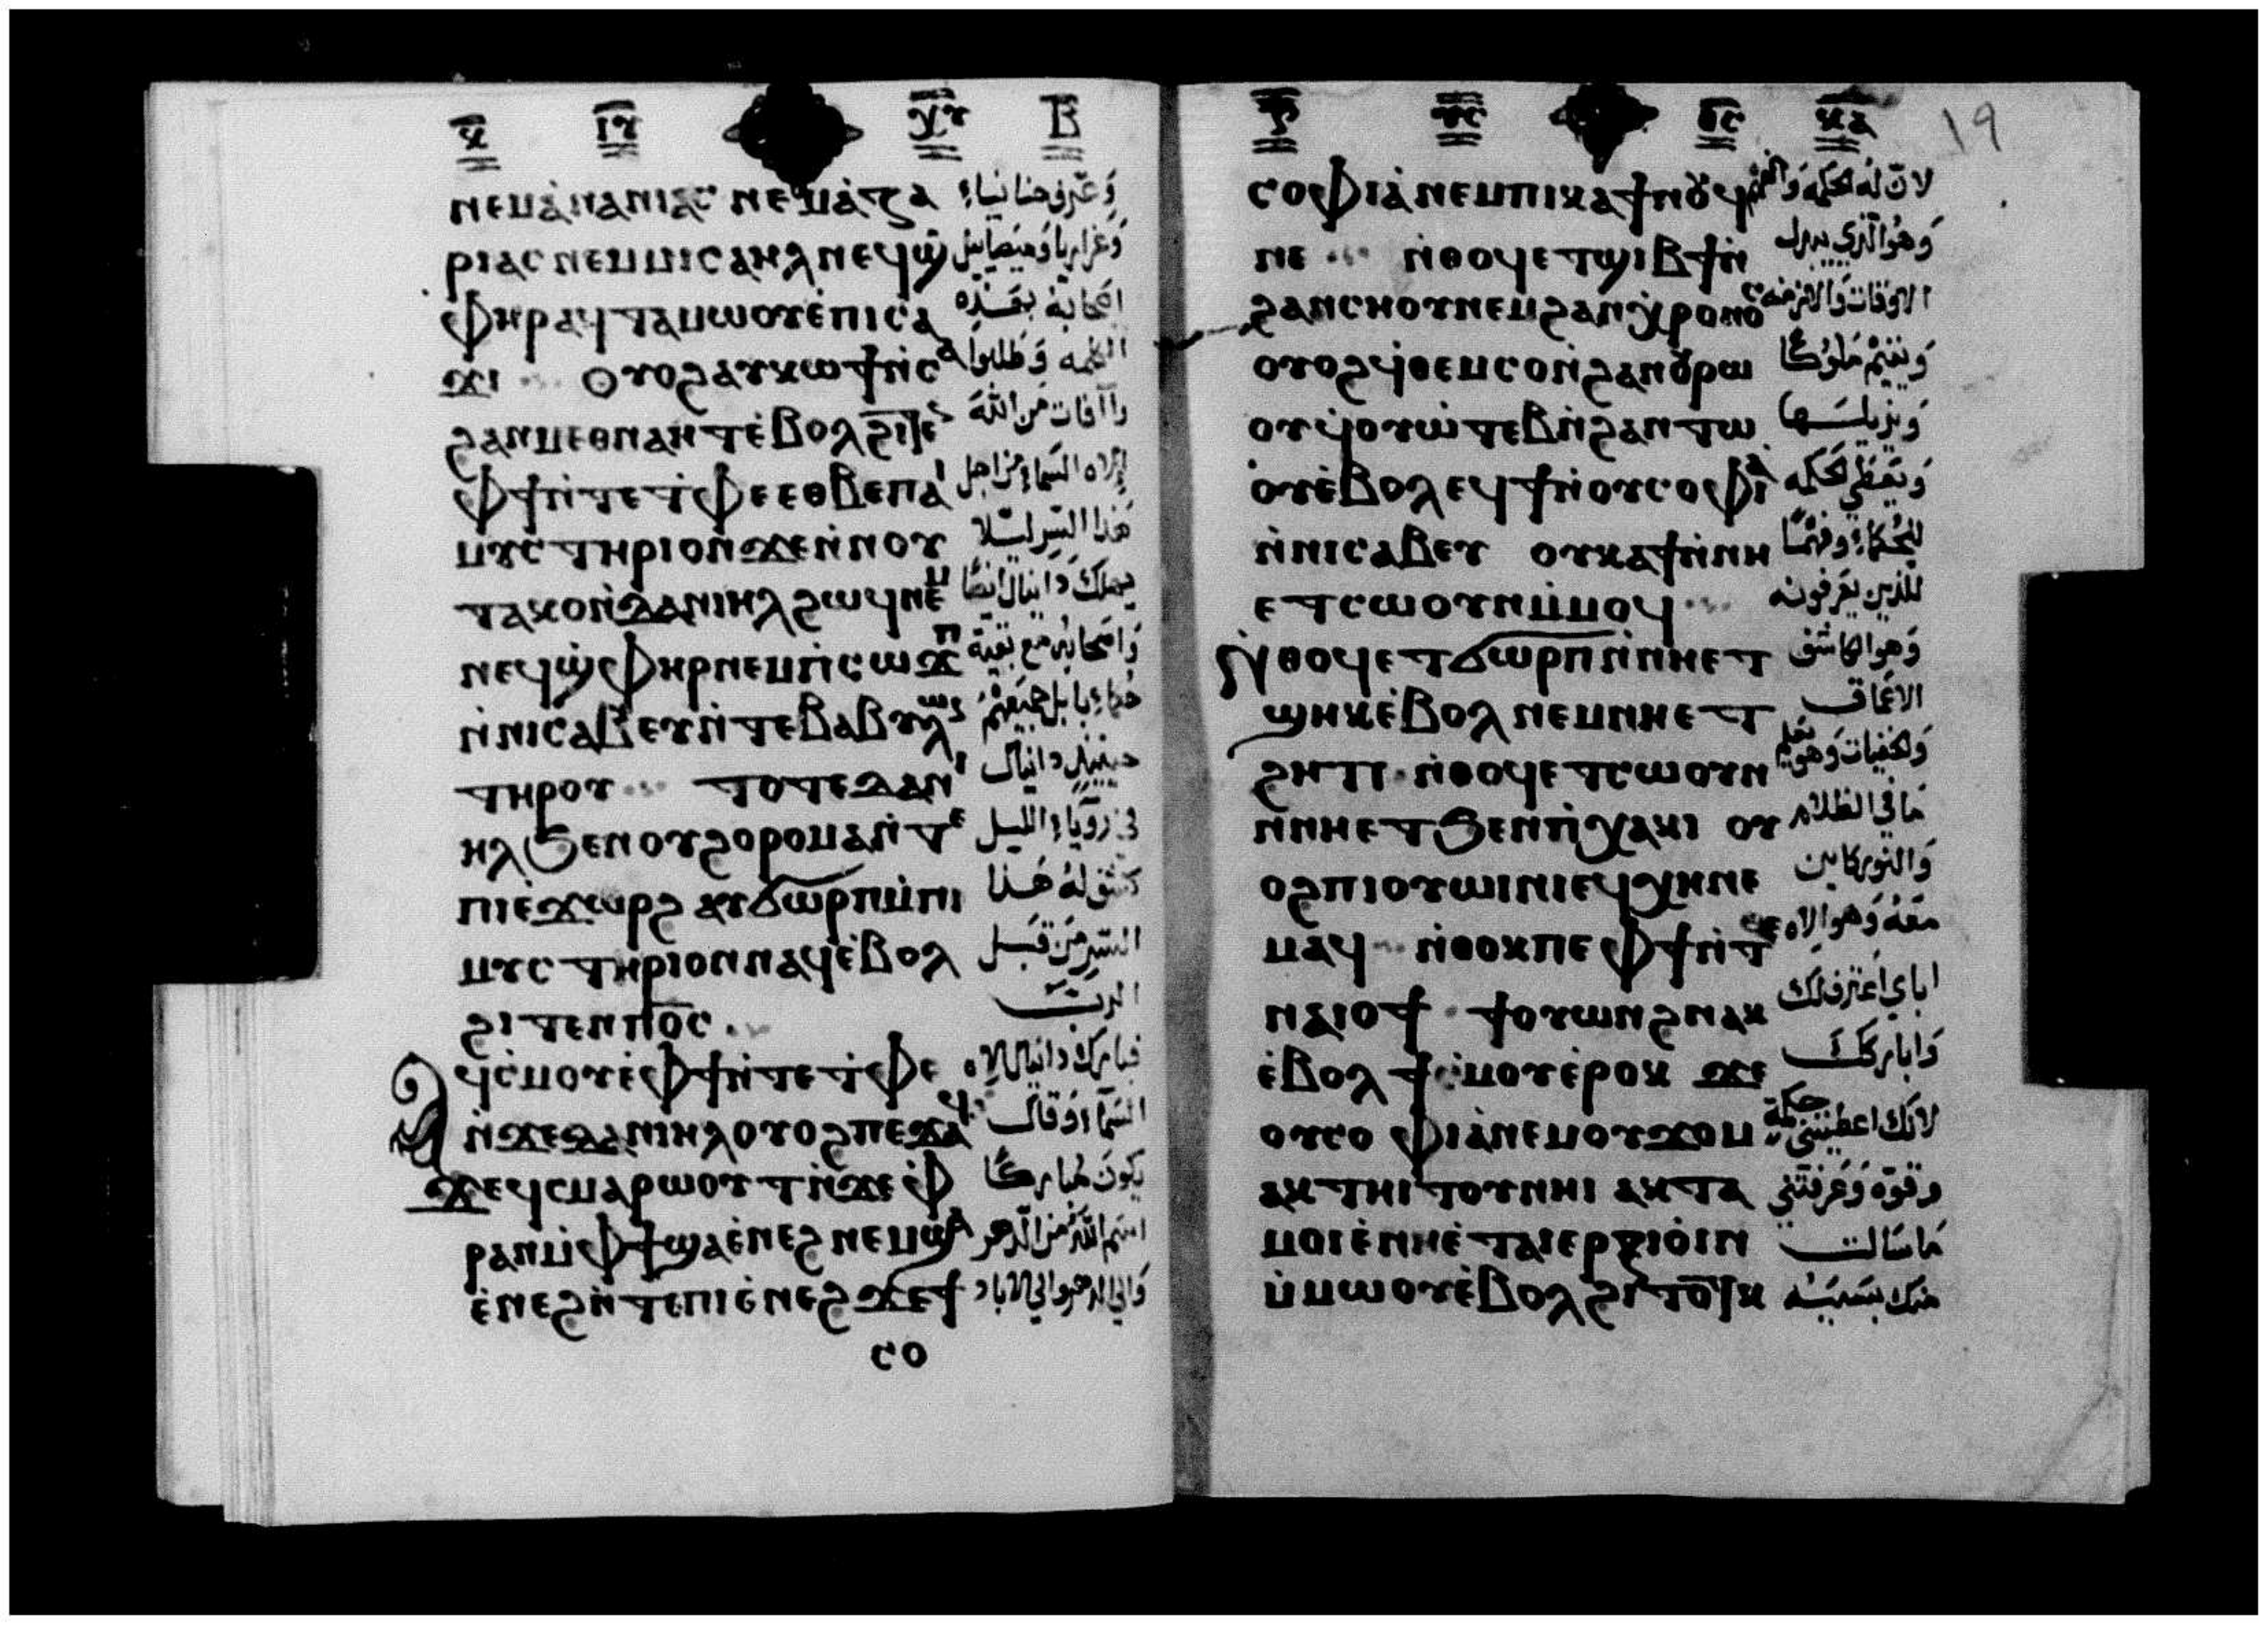 ⲕ̅ ⲓⲩ̅ ⲭⲩ̅ Ⲃ̅
ⲛⲉⲙⲁ̀ⲛⲁⲛⲓⲁⲥ ⲛⲉⲙⲁ̀ⲍⲁ وعرف حنانياء
ⲣⲓⲁⲥ ⲛⲉⲙⲙⲓⲥⲁⲏⲗ ⲛⲉϥϣ̀ وعزاريا وميصاييل
ⲫⲏⲣ ⲁϥⲧⲁⲙⲱⲟⲩ ⲉ̀ⲡⲓⲥⲁ اصحابه بهذه
ϫⲓ ⲟⲩⲟϩ ⲁⲩⲕⲱϯ ⲛ̀ⲥⲁ الكلمه وطلبوا
ϩⲁⲛⲙⲉⲑⲛⲁⲏⲧ ⲉ̀ⲃⲟⲗ ϩⲓⲧⲉ رأافات من الله
ⲫϯ ⲛ̀ⲧⲉ ⲧ̀ⲫⲉ ⲉⲑⲃⲉ ⲡⲁⲓ إلاه السماء من اجل
ⲙⲩⲥⲧⲏⲣⲓⲟⲛ ϫⲉ ⲛ̀ⲛⲟⲩ هذا السر ليلا
ⲧⲁⲕⲟ ⲛ̀ϫⲁⲛⲓⲏⲗ ϩⲱϥ ⲛⲉⲙ يهلك دانيال ايضا
ⲛⲉϥϣ̀ⲫⲏⲣ ⲛⲉⲙ ⲡ̀ⲥⲱϫⲡ واصحابه مع بقية
ⲛ̀ⲛⲓⲥⲁⲃⲉⲩ ⲛ̀ⲧⲉ ⲃⲁⲃⲩⲗⲱ حكماء بابل جميعهم
ⲧⲏⲣⲟⲩ ⲧⲟⲧⲉ ⲇⲁⲛⲓ حينيذ دانيال
ⲏⲗ ϧⲉⲛ ⲟⲩϩⲟⲣⲟⲙⲁ ⲛ̀ⲧⲉ في رؤياء الليل
ⲡⲓⲉ̀ϫⲱⲣϩ ⲁⲩϭⲱⲣⲡ ⲙ̀ⲡⲓ كشف له هذا
ⲙⲩⲥⲧⲏⲣⲓⲟⲛ ⲛⲁϥ ⲉ̀ⲃⲟⲗ السر من قبل
ϩⲓⲧⲉⲛ ⲡⲟ̅ⲥ̅ الرب
ⲁϥⲥ̀ⲙⲟⲩ ⲉ̀ⲫϯ ⲛ̀ⲧⲉ ⲧ̀ⲫⲉ فبارك دانيال لإلاه
ⲛ̀ϫⲉ ⲇⲁⲛⲓⲏⲗ ⲟⲩⲟϩ ⲡⲉϫⲁϥ السماء وقال
ϫⲉ ϥⲥⲙⲁⲣⲱⲟⲩⲧ ⲛ̀ϫⲉ ⲫ̀ يكون مباركا
ⲣⲁⲛ ⲙ̀ⲫϯ ϣⲁ ⲉ̀ⲛⲉϩ ⲛⲉⲙ ϣⲁ اسم الله من الدهر
ⲉ̀ⲛⲉϩ ⲛ̀ⲧⲉ ⲡⲓⲉ̀ⲛⲉϩ ϫⲉ ϯ والي الدهر والي الاباد
ⲥⲟ
ⲩⲥ̅ ⲑⲥ̅ ⲕⲁ̅ 19
ⲥⲟⲫⲓⲁ̀ ⲛⲉⲙ ⲡⲓⲕⲁϯ ⲛⲟⲩϥ لان له الحكمه والفهم
ⲛⲉ ⲛ̀ⲑⲟϥ ⲉⲧϣⲓⲃϯ ⲛ̀ وهو الذي يبدل
ϩⲁⲛⲥⲏⲟⲩ ⲛⲉⲙ ϩⲁⲛⲭ̀ⲣⲟⲛⲟⲥ الاوقات والازمنه
ⲟⲩⲟϩ ϥ̀ⲑⲉⲙⲥⲟ ⲛ̀ϩⲁⲛⲟⲩⲣⲱ ويقيم ملوكا
ⲟⲩ ϥ̀ⲟⲩⲱ̀ⲧⲉⲃ ⲛ̀ϩⲁⲛⲧⲱ ويزيلها
ⲟⲩ ⲉ̀ⲃⲟⲗ ⲉϥϯ ⲛ̀ⲟⲩⲥⲟⲫⲓⲁ ويعطي الحكمه
ⲛ̀ⲛⲓⲥⲁⲃⲉⲩ ⲟⲩⲕⲁϯ ⲛ̀ⲛⲏ للحكماء وفهما
ⲉⲧⲥⲱⲟⲩⲛ ⲙ̀ⲙⲟϥ للذين يعرفونه
ⲛ̀ⲑⲟϥ ⲉⲧϭⲱⲣⲡ ⲛ̀ⲛⲏⲉⲧ وهو الكاشف
ϣⲏⲕ ⲉ̀ⲃⲟⲗ ⲛⲉⲙ ⲛⲏⲉⲧ الاعماق
ϩⲏⲡ ⲛ̀ⲑⲟϥ ⲉⲧⲥⲱⲟⲩⲛ والخفيات وهو يعلم
ⲛ̀ⲛⲏⲉⲧϧⲉⲛ ⲡ̀ⲭⲁⲕⲓ ⲟⲩ ما في الظلام
ⲟϩ ⲡⲓⲟⲩⲱⲓⲛⲓ ⲉϥⲭⲏ ⲛⲉ والنور كاين
ⲙⲁϥ ⲛ̀ⲑⲟⲕ ⲡⲉ ⲫϯ ⲛ̀ⲧⲉ معه وهو الاه
ⲛⲁⲓⲟϯ ϯⲟⲩⲱⲛϩ ⲛⲁⲕ اباي اعترف لك
ⲉ̀ⲃⲟⲗ ϯⲥ̀ⲙⲟⲩ ⲉ̀ⲣⲟⲕ ϫⲉ وابارك
ⲟⲩⲥⲟⲫⲓⲁ̀ ⲛⲉⲙ ⲟⲩϫⲟⲙ لانك اعطيتني حكمة
ⲁⲕⲧⲏⲓⲧⲟⲩ ⲛⲏⲓ ⲁⲕⲧⲁ وقوة وعرفتني
ⲙⲟⲓ ⲉ̀ⲛⲏⲉ̀ⲧⲁⲓⲉⲣⲁⲝⲓⲟⲓⲛ ما سالت
ⲙ̀ⲙⲱⲟⲩ ⲉ̀ⲃⲟⲗ ϩⲓⲧⲟⲧⲕ منك